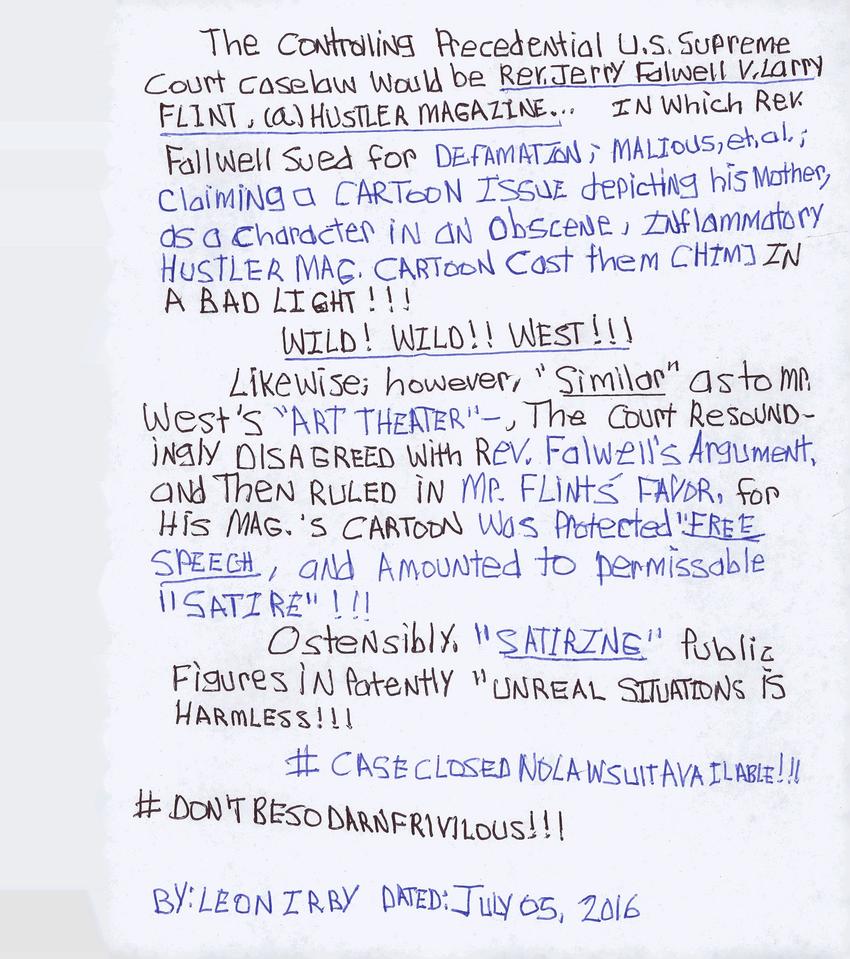 The Controlling Precedential U.S. Supreme
Court caselaw would be Rev. Jerry Falwell V. Larry
FLINT, (a) HUSTLER MAGAZINE... IN which Rev.
Fallwell Sued for DEFAMATION; MALIOUS, et, al.;
Claiming a CARTOON ISSUE depicting his Mother,
as a Character in an Obscene, Inflammatory
HUSTLER MAG. CARTOON Cast them [HIM] IN
A BAD LIGHT!!!
WILD! WILD!! WEST!!!
Likewise; however, "Similar" as to Mr.
West's "ART THEATER"-, The Court Resound-
ingly DISAGREED with Rev. Falwell's Argument,
and Then RULED in MR. FLINTS' FAVOR, for
His MAG.'S CARTOON Was Protected "FREE
SPEECH, and Amounted to permissable
"SATIRE"!!!
Ostensibly, "SATIRZNG" Public
Figures in Patently "UNREAL SITUATIONS is
HARMLESS!!!
# CASECLOSEDNOLAWSUITAVAILABLE!!!
# DON'TBESODARNFRIVILOUS!!!
BY: LEON IRBY DATED: July 05, 2016